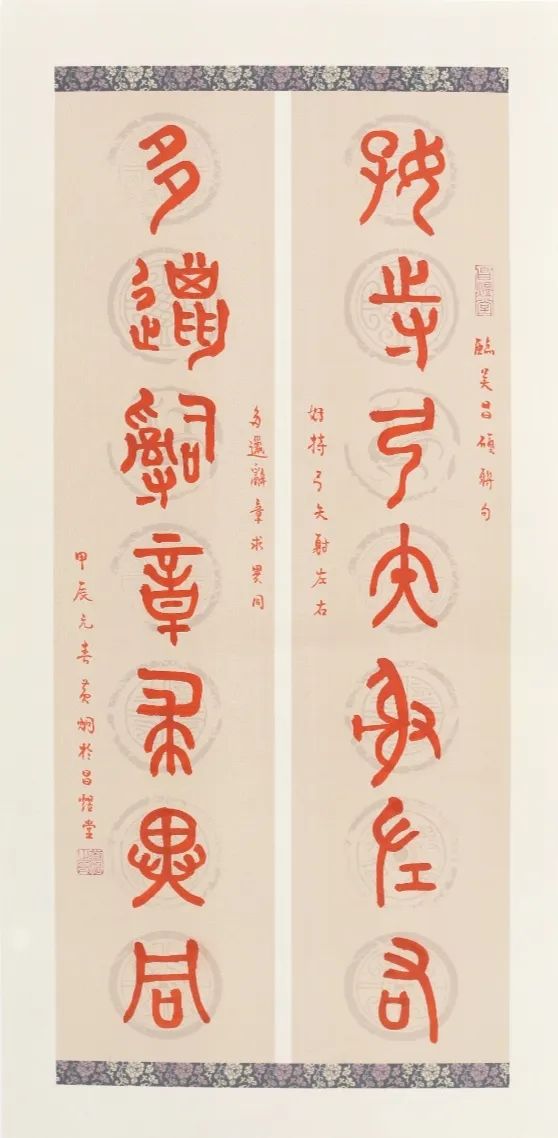 臨吴昌碩聯句
好持弓矢射左右
好持弓矢射左右
多邋辭章求異同
多邋辭章求異同
甲辰元春黄炯於昌熠堂